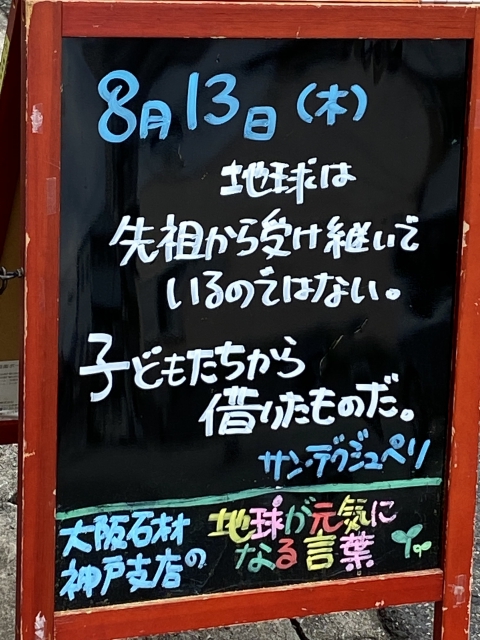 8月13日(木)
地球は
先祖から受け継いで
いるのではない。
子どもたちから
借りたものだ。
サン・デグジュペリ
大阪石材
神戸支店の
地球が元気に
なる言葉